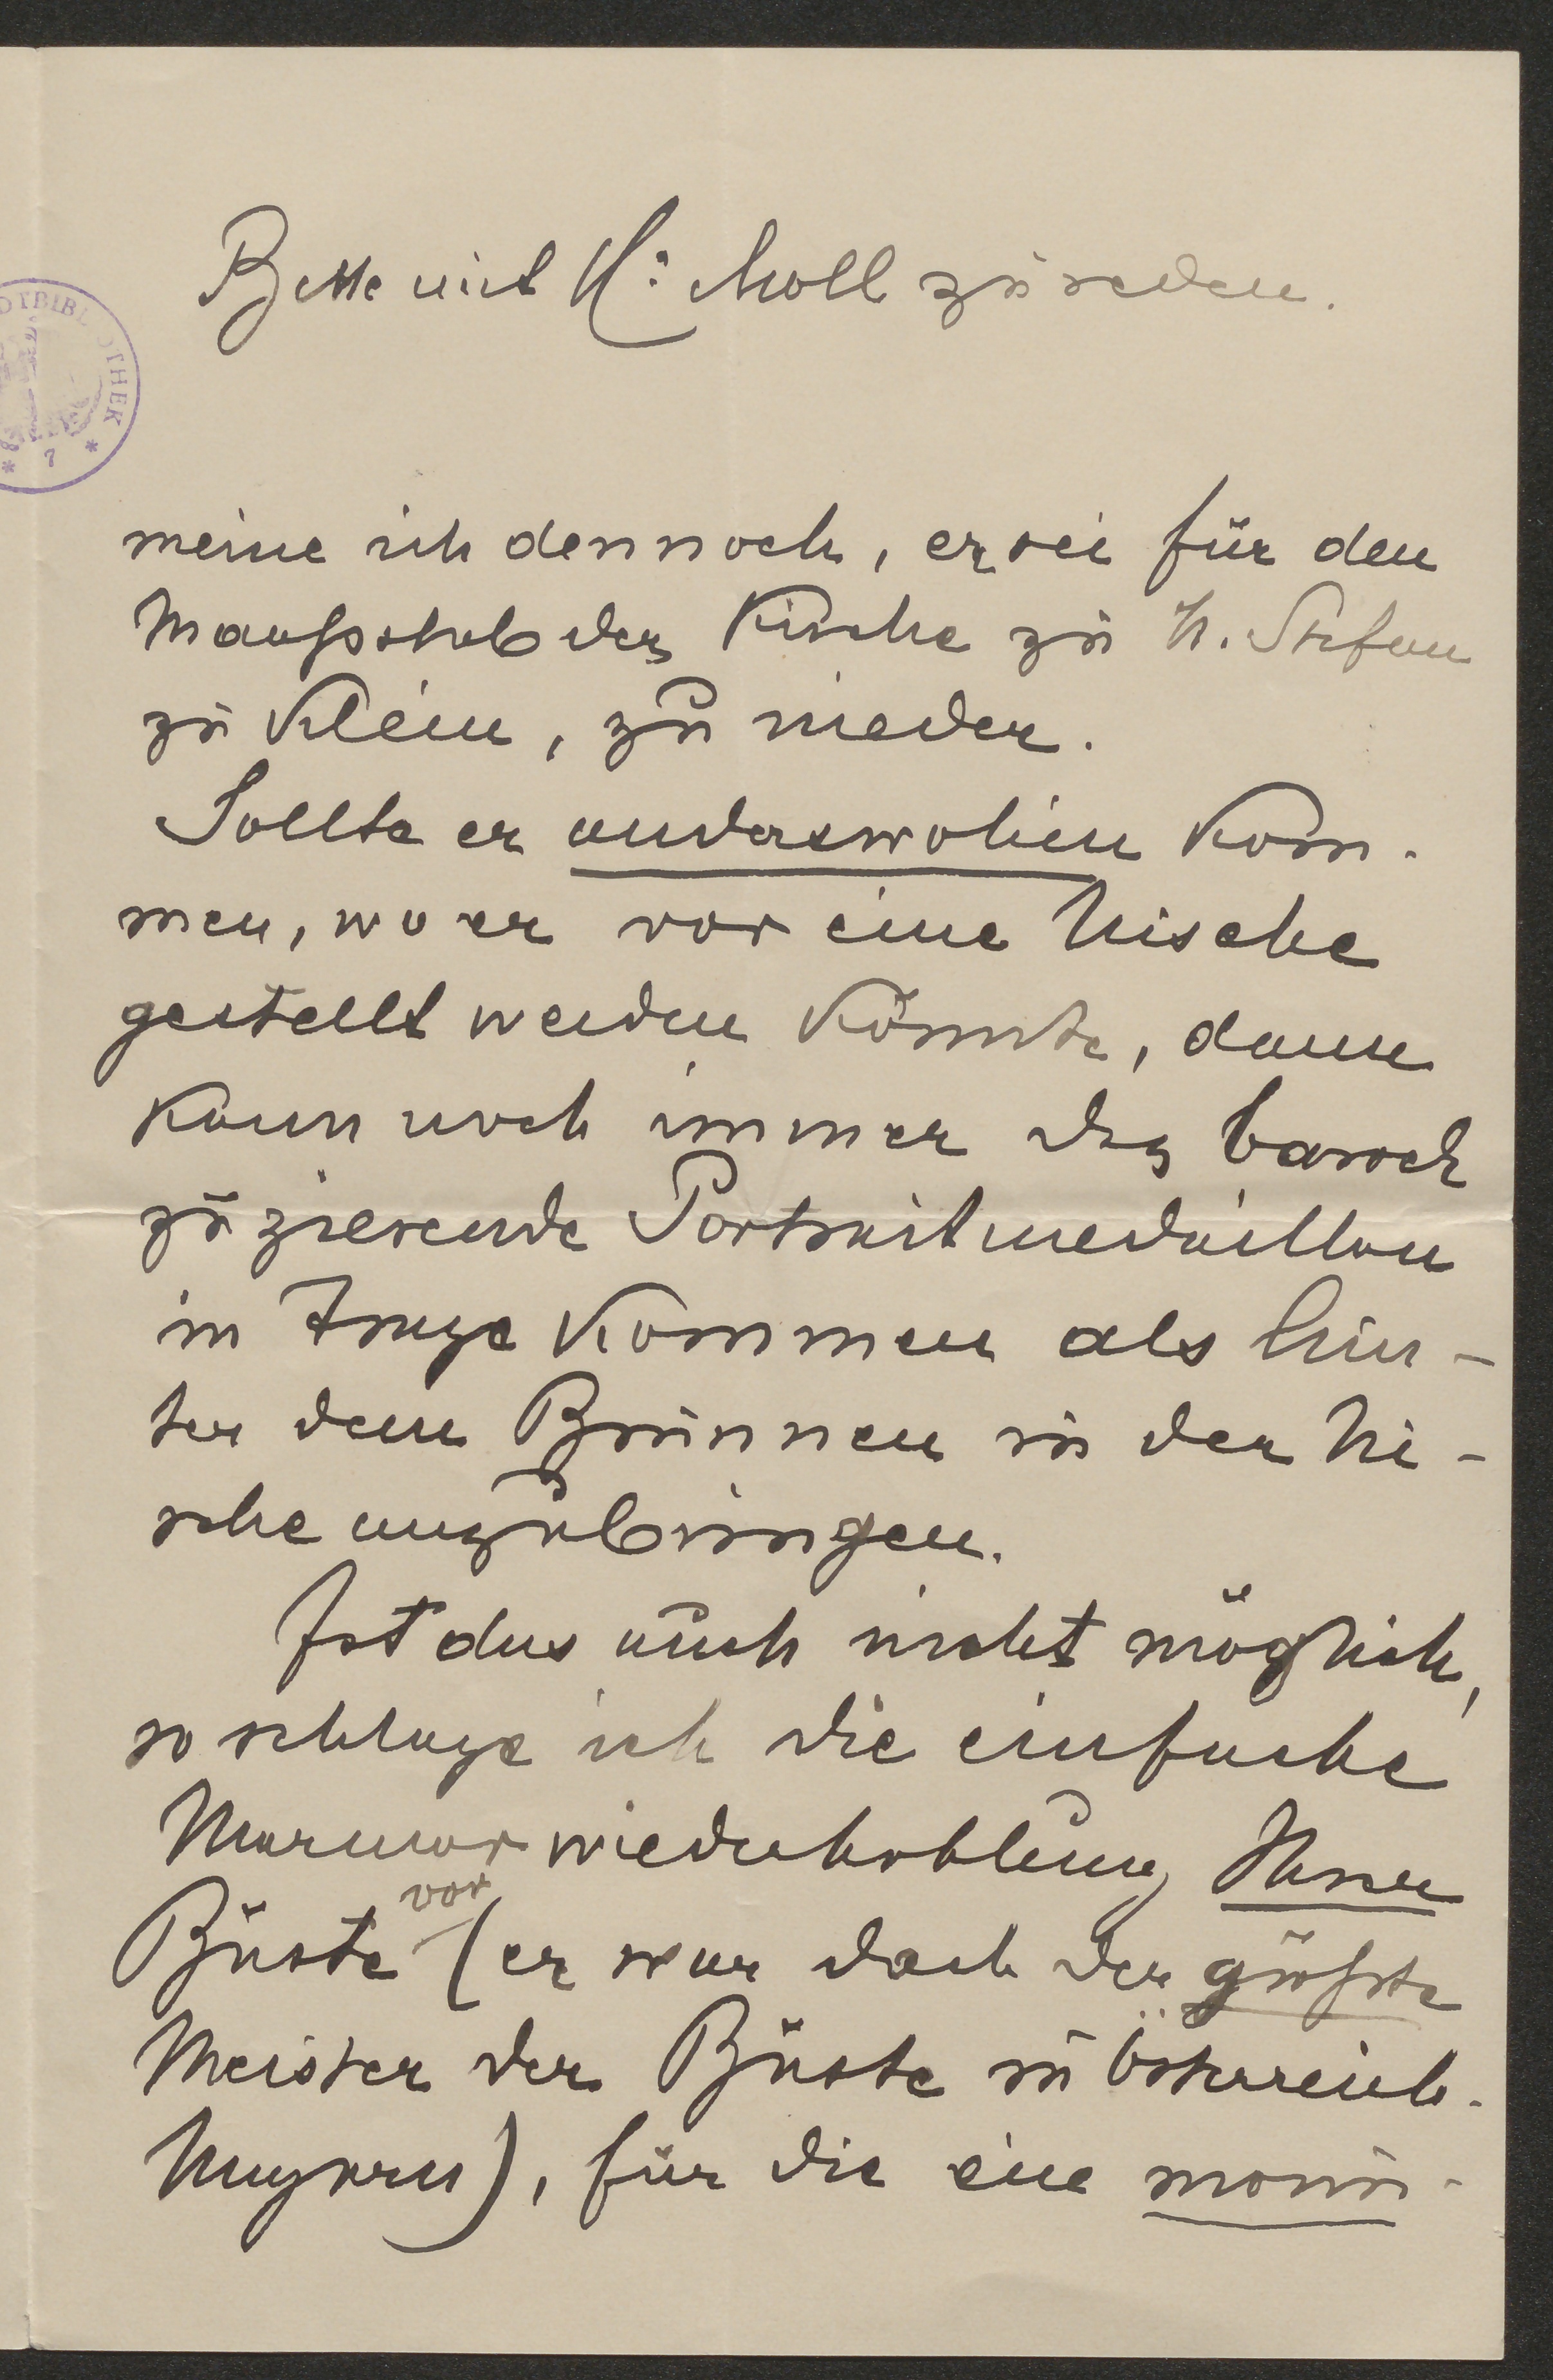 Bitte mit H: Moll zu reden.
STADTBIBLIOTHEK
* 7 *
meine ich dennoch, er sei für den
Maaßstab der Kirche zu St. Stefan
zu klein, zu nieder.
Sollte er anderswohin kom-
men, wo er vor eine Nische
gestellt werden könnte, dann
kann noch immer das barock
zu zierende Portraitmedaillon
in Frage kommen als hin-
ter dem Brunnen in der Ni-
sche anzubringen.
Ist das auch nicht möglich,
so schlage ich die einfache
Marmorwiederhohlung Ihrer
vor
Büste (er war doch der größte
Meister der Büste in Österreich-
Ungarn), für die eine